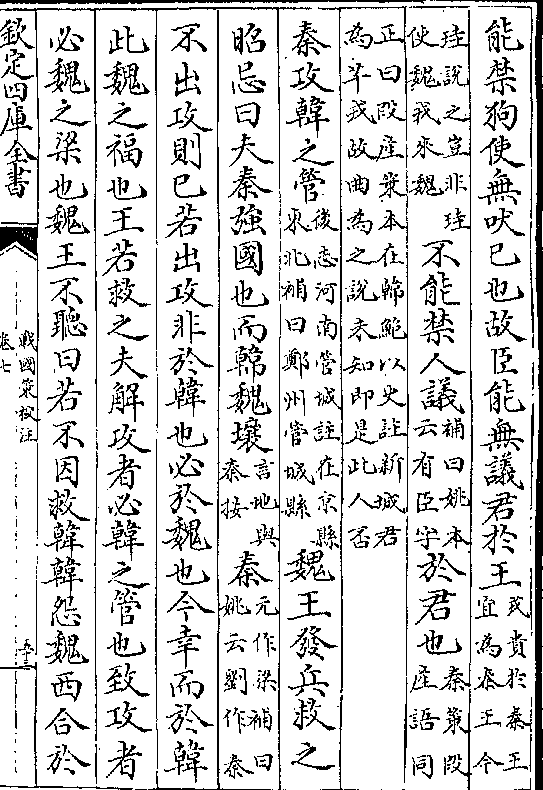 能禁狗使無吠已也故臣能無議君於王或貴於秦王宜為秦王令
珪說之豈非珪使魏戎來魏不能禁人議補曰姚本云有臣字於君也秦策段產語同
正曰段產策本在韓鮑以史註新城君為羋戎故曲為之說未知即是此人否
秦攻韓之管後志河南管城註在京縣東北補曰鄭州管城縣魏王發兵救之
昭忌曰夫秦強國也而韓魏壤言地與秦接秦元作梁補曰姚云劉作秦
不出攻則已若出攻非於韓也必於魏也今幸而於韓
此魏之福也王若救之夫解攻者必韓之管也致攻者
必魏之梁也魏王不聽曰若不因救韓韓怨魏西合於
欽定四庫全書
戰國策校注
卷七